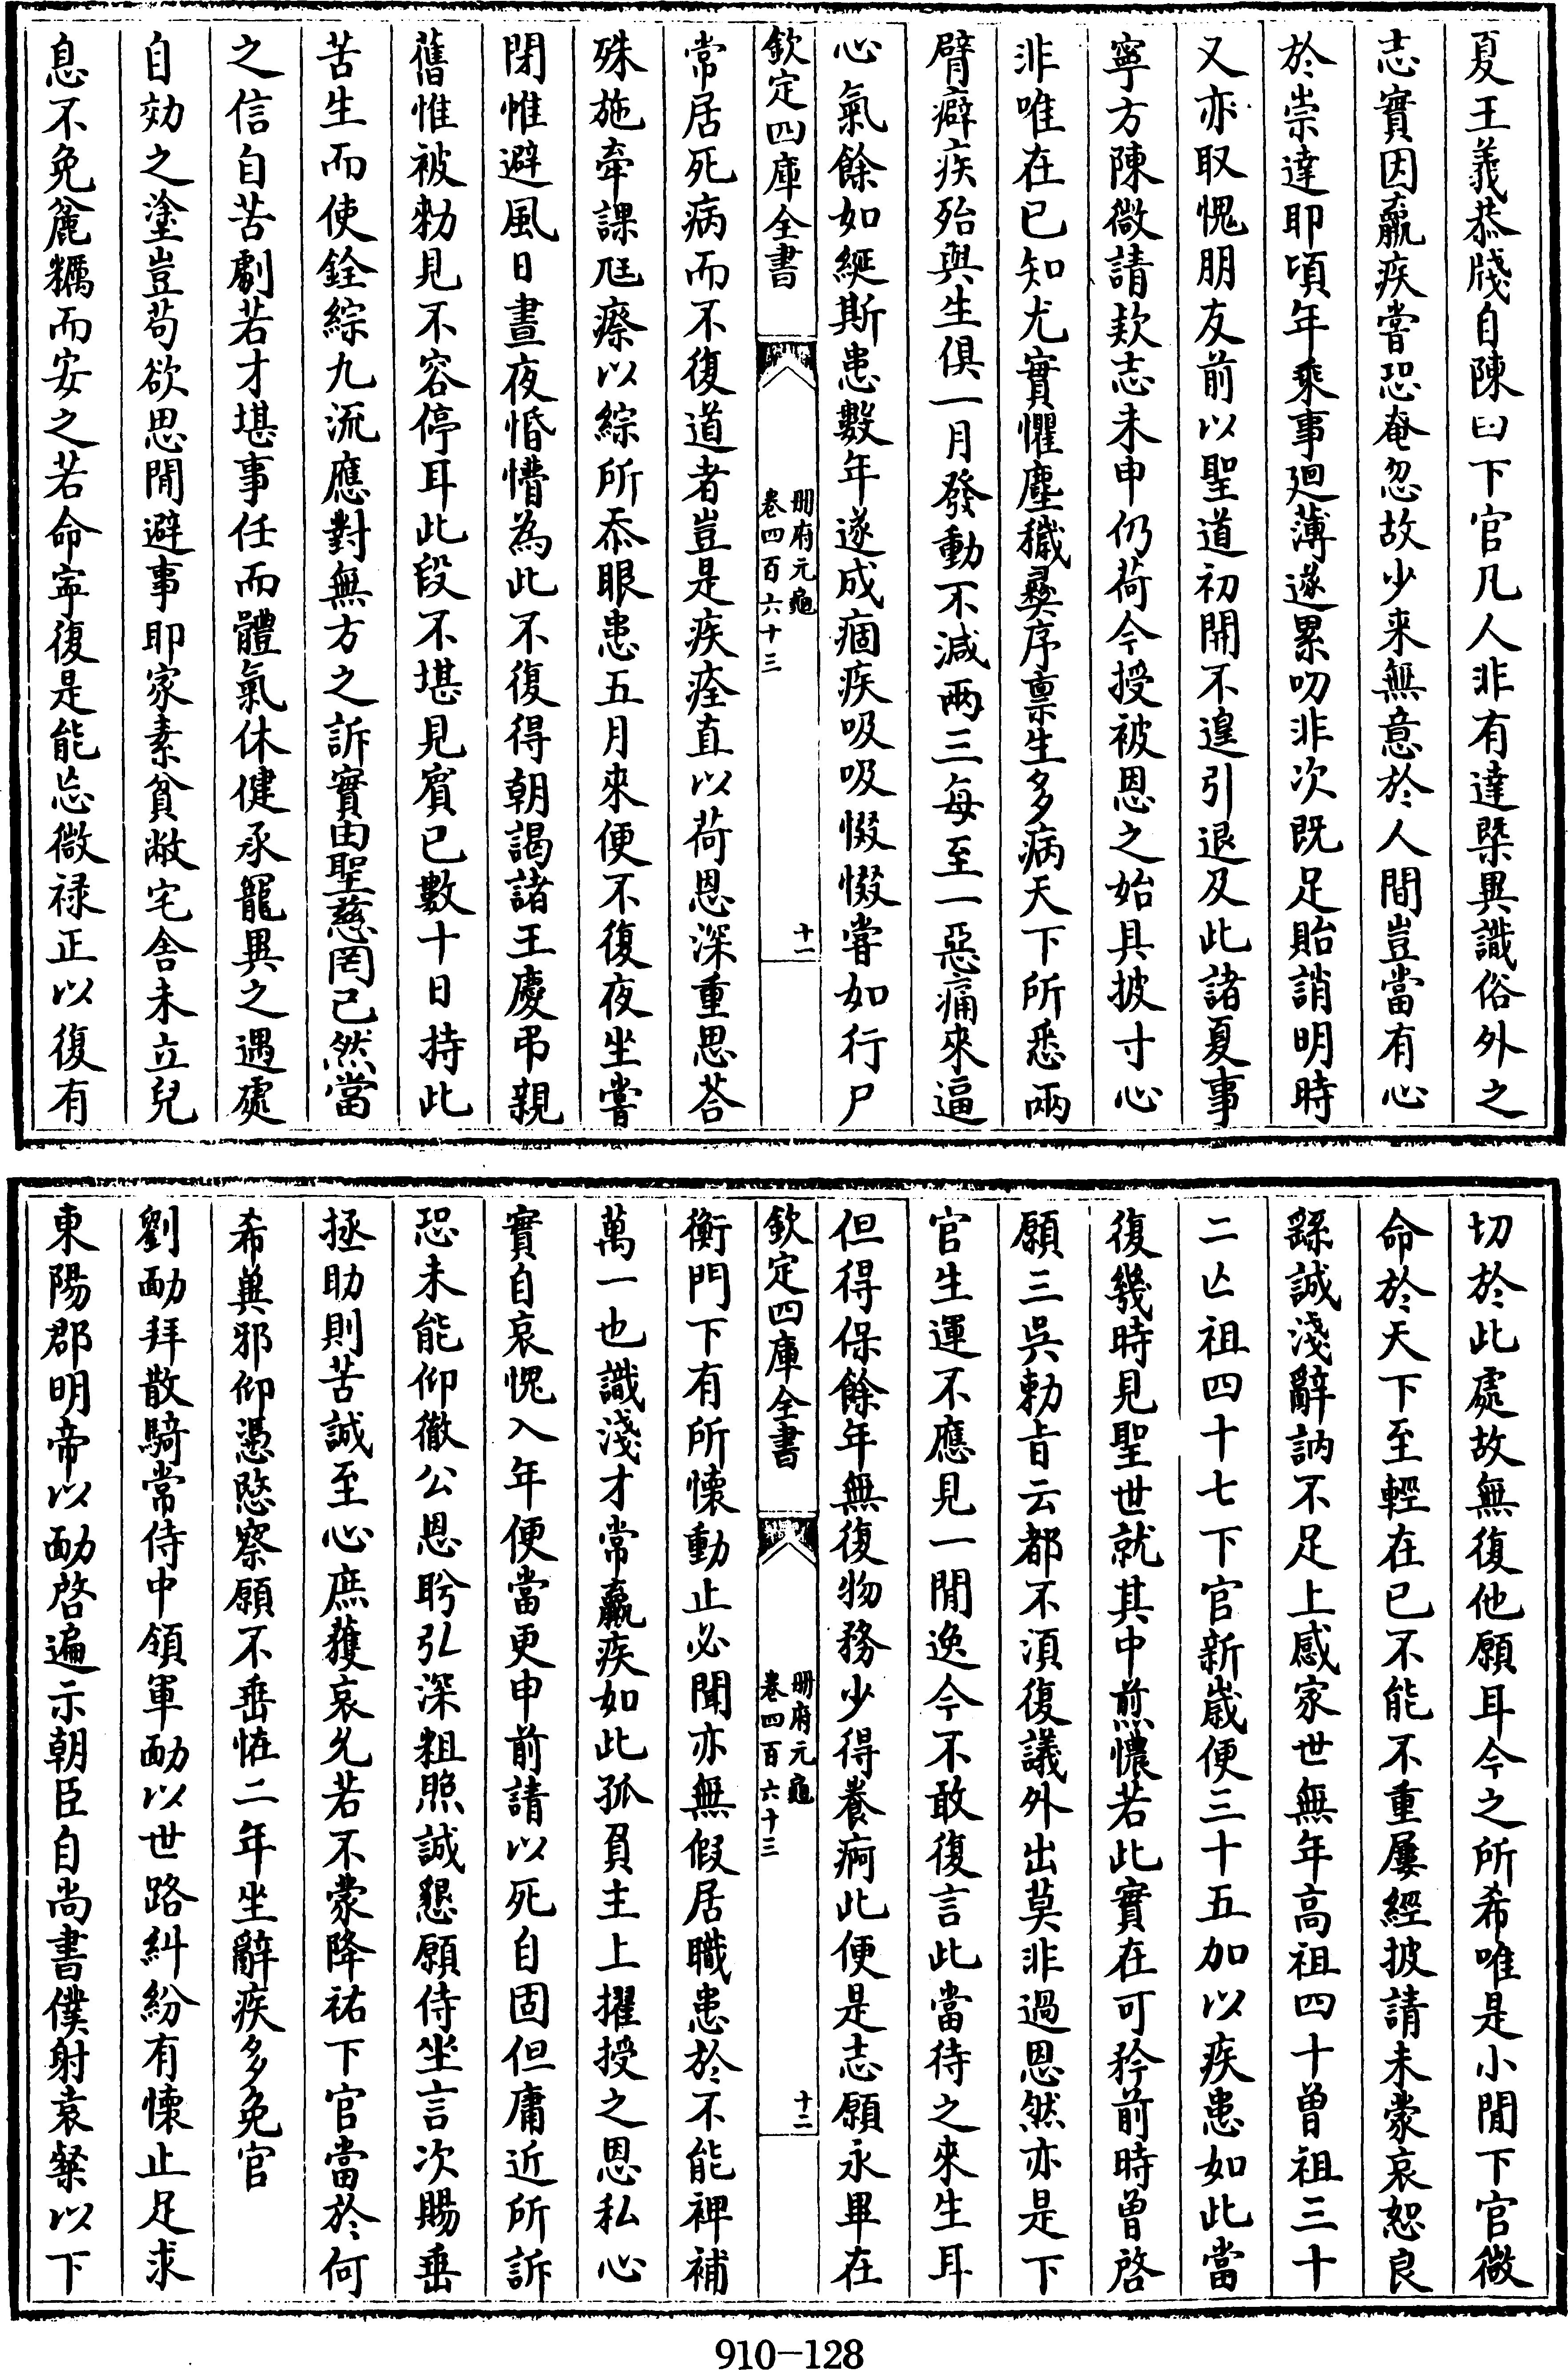 夏王義恭牋自陳曰下官凡人非有達槩異識俗外之
志實因羸疾嘗恐奄忽故少来無意於人間豈當有心
於崇達耶頃年乘事廻薄遂累叨非次既足貽誚明時
又亦取愧朋友前以聖道初開不遑引退及此諸夏事
寧方陳微請款志未申仍荷今授被恩之始具披寸心
非唯在已知尤實懼塵穢彜序禀生多病天下所悉兩
臂癖疾殆與生俱一月發動不減兩三每至一惡痛來逼
心氣餘如綖斯患數年遂成痼疾吸吸惙惙嘗如行尸
欽定四庫全書
冊府元龜
卷四百六十三
十一
常居死病而不復道者豈是疾痊直以荷恩深重思荅
殊施牽課尩瘵以綜所忝眼患五月來便不復夜坐嘗
閉帷避風日晝夜惛懵為此不復得朝謁諸王慶弔親
舊惟被勅見不容停耳此段不堪見賔已數十日持此
苦生而使銓綜九流應對無方之訴實由聖慈罔已然當
之信自苦劇若才堪事任而體氣休健承寵異之遇處
自効之塗豈苟欲思閒避事耶家素貧敝宅舍未立兒
息不免麄糲而安之若命寧復是能忘微禄正以復有
切於此處故無復他願耳今之所希唯是小閒下官微
命於天下至輕在已不能不重屢經披請未蒙哀恕良
繇誠淺辭訥不足上感家世無年高祖四十曾祖三十
二亡祖四十七下官新歲便三十五加以疾患如此當
復幾時見聖世就其中煎憹若此實在可矜前時曾啓
願三吳勅㫖云都不須復議外出莫非過恩然亦是下
官生運不應見一閒逸今不敢復言此當待之來生耳
但得保餘年無復物務少得養痾此便是志願永畢在
欽定四庫全書
冊府元龜
卷四百六十三
十二
衡門下有所懐動止必聞亦無假居職患於不能裨補
萬一也識淺才常羸疾如此孤負主上擢授之恩私心
實自哀愧入年便當更申前請以死自固但庸近所訴
恐未能仰徹公恩盻弘深粗照誠懇願侍坐言次賜垂
拯助則苦誠至心庶獲哀允若不蒙降祐下官當於何
希兾邪仰憑愍察願不垂恠二年坐辭疾多免官
劉勔拜散騎常侍中領軍勔以世路糾紛有懐止足求
東陽郡明帝以勔啓遍示朝臣自尚書僕射袁粲以下
910-128